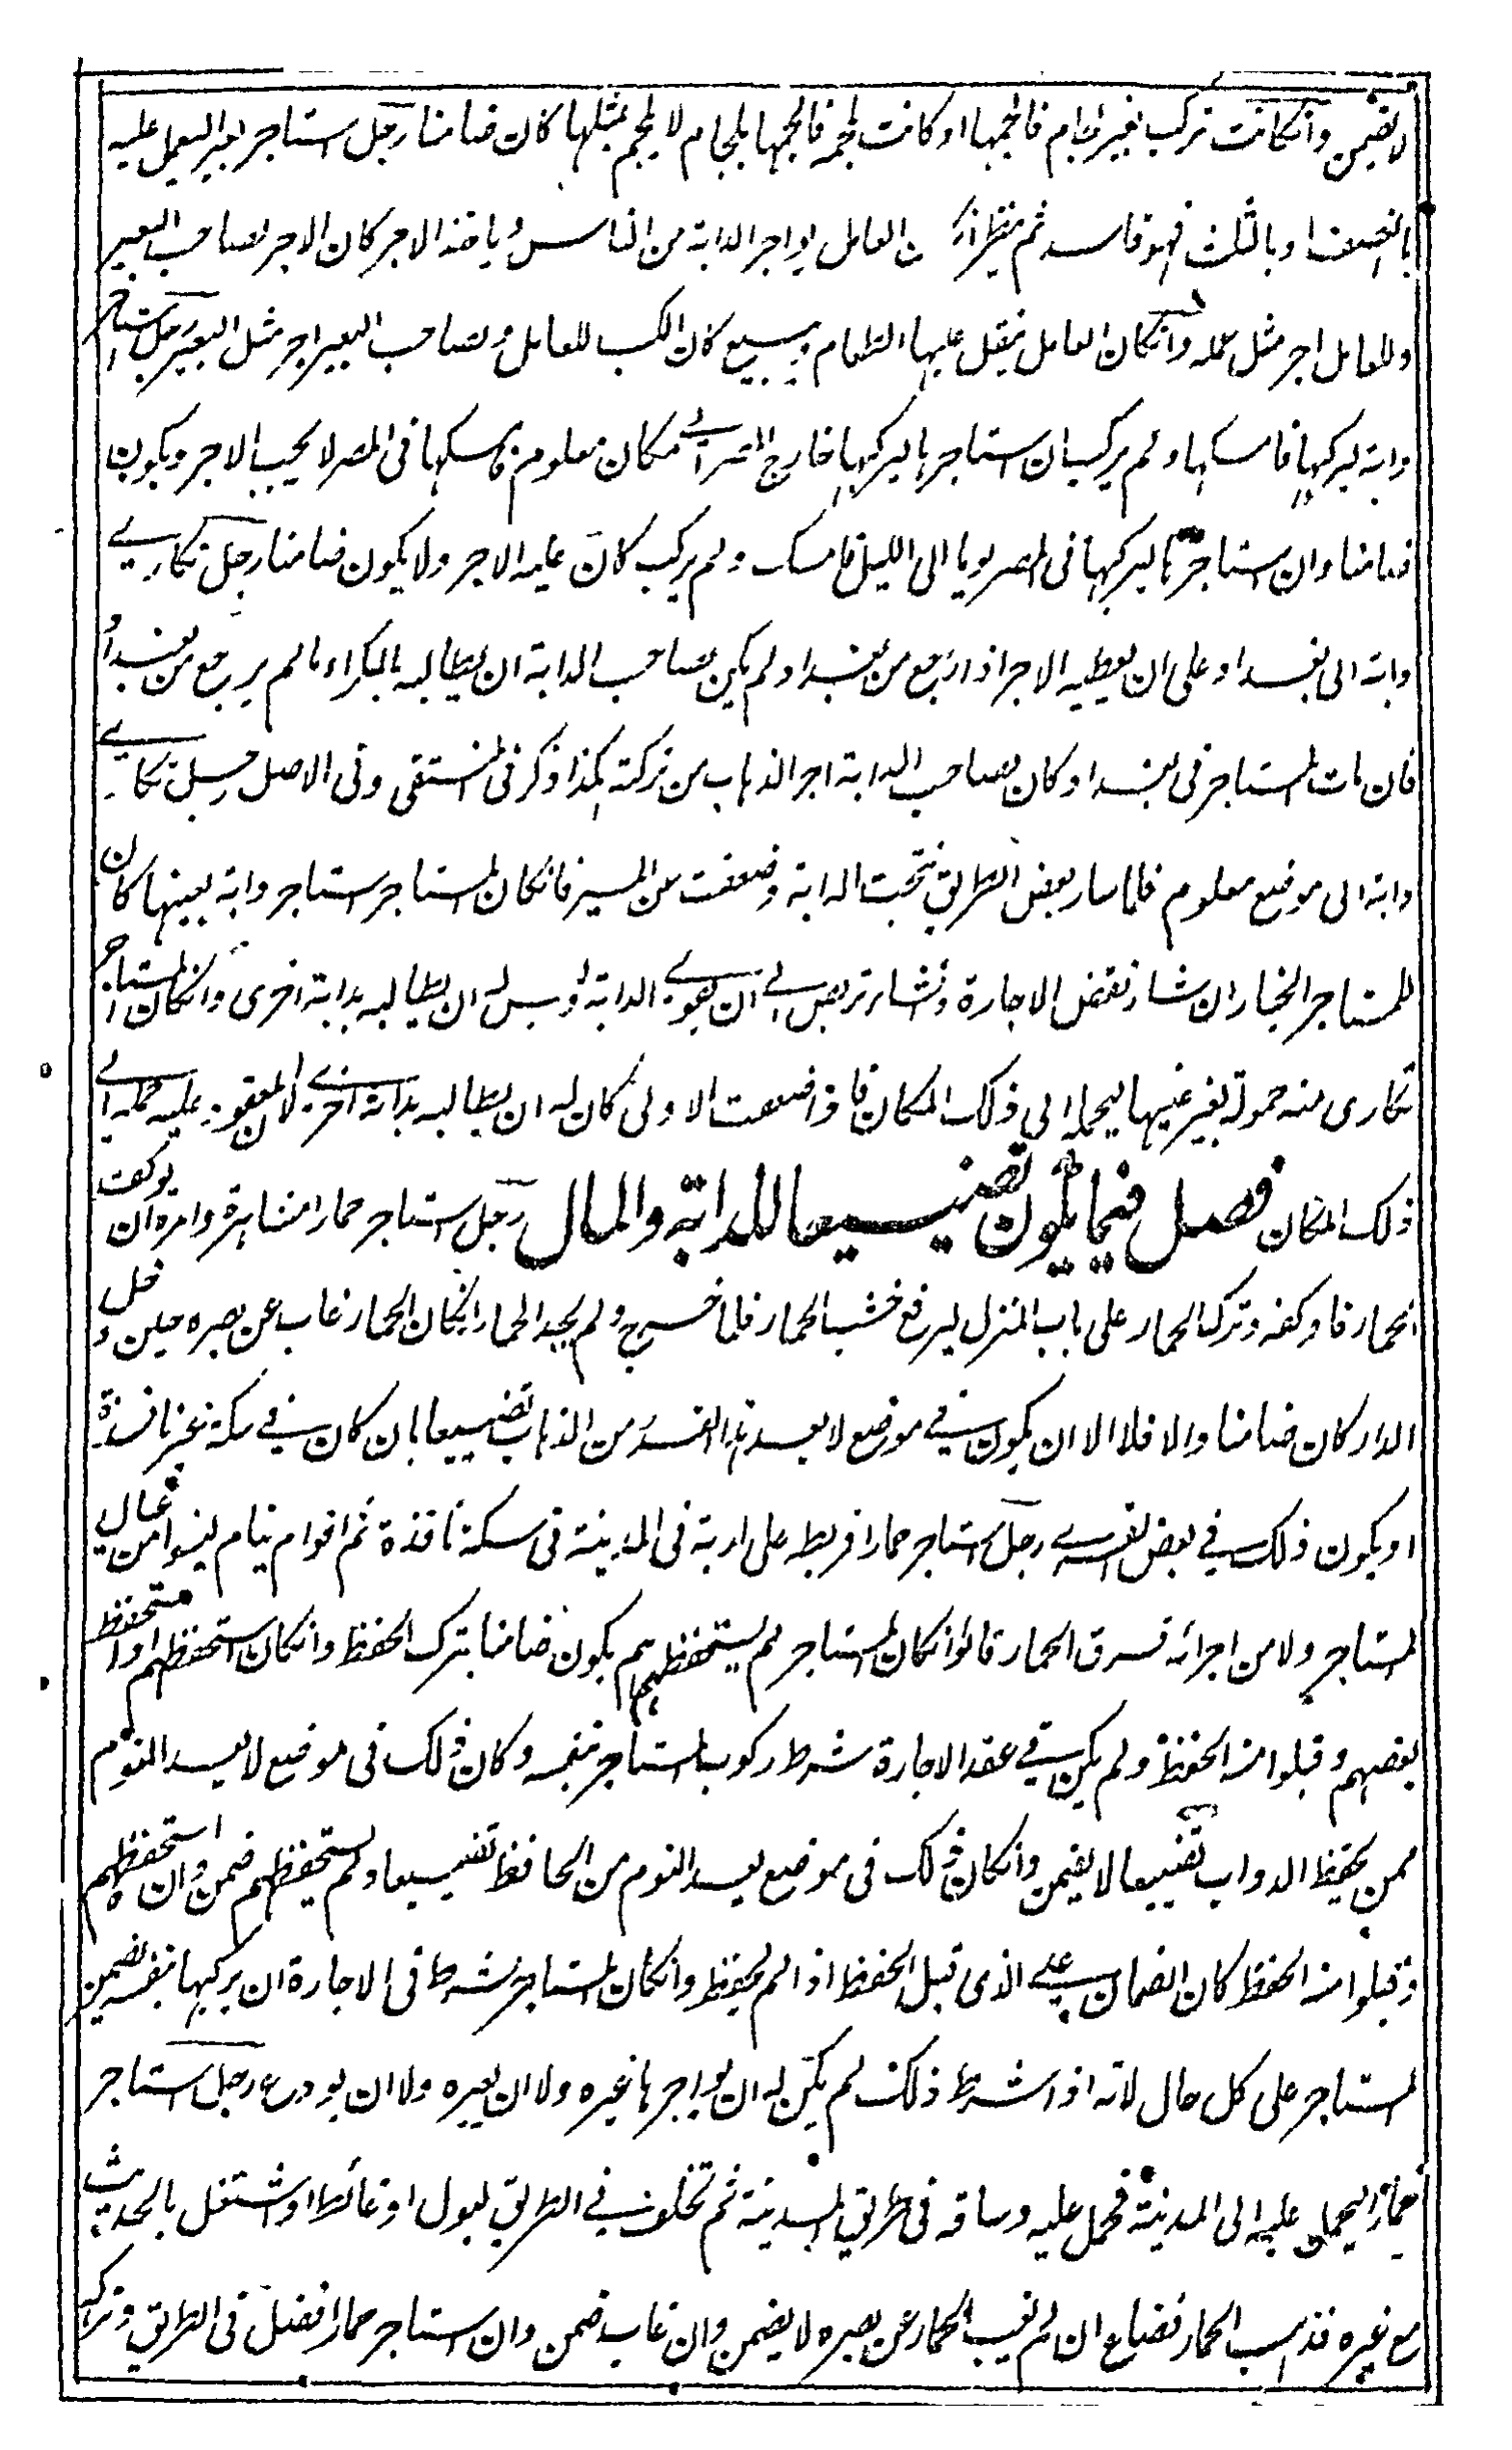 لا يضمن وانكانت تركب بغير لجام فالجمها او كانت تلجم فالجمها بلجام لا يلجم بمثلها كان ضامنا رجل استاجر بعير اليعمل عليه
بالنصف او بالثلث فهو فاسد ثم ينظر ان كان العامل يواجر الدابة من الناس وياخذ الاجر كان الاجر لصاحب البعير
وللعامل اجر مثل عمله وانكان العامل ينقل عليها الطعام ويبيع كان الكسب للعامل ولصاحب البعير اجر مثل البعير رجل استاجر
دابة ليركبها فامسكها ولم يركب ان استاجرها ليركبها خارج المصر الى مكان معلوم فامسكها فى المصر لا يجب الاجر ويكون
ضامنا وان استاجرها ليركبها فى المصر يوما الى الليل فامسك ولم يركب كان عليه الاجر ولا يكون ضامنا رجل تكارى
دابة الى بغداد على ان يعطيه الاجر اذا رجع من بغداد لم يكن لصاحب الدابة ان يطالبه بالكراء ما لم يرجع من بغداد
فان مات المستاجر فى بغداد كان لصاحب الدابة اجر الذهاب من تركته هكذا ذكر فى المنتقى وفى الاصل رجل تكارى
دابة الى موضع معلوم فلما سار بعض الطريق نتجت الدابة وضعفت عن المسير فانكان المستاجر استاجر دابة بعينها كان
للمستاجر الخيار ان شاء نقض الاجارة وان شاء تربص الى ان يقوى الدابة وليس له ان يطالبه بدابة اخرى وانكان المستاجر
تكارى منه حمولة بغير عينها ليحمله الى ذلك المكان فاذا ضعفت الاولى كان له ان يطالبه بدابة اخرى لان المعقود عليه حمله الى
ذلك المكان فصل فيما يكون تضييعا للدابة والمال رجل استاجر حمارا مشاهرة وامره ان يوكف
الحمار فاوكفه وترك الحمار على باب المنزل ليرفع خشب الحمار فلما خرج ولم يجد الحمار انكان الحمار غاب عن بصره حين دخل
الدار كان ضامنا والا فلا الا ان يكون فى موضع لا يعد هذا القدر من الذهاب تضييعا بان كان فى سكة غير نافذة
او يكون ذلك فى بعض القرى رجل استاجر حمارا فربطه على اربة فى المدينة فى سكة نافذة ثم اقوام نيام ليسوا من عيال
المستاجر ولا من اجرائه فسرق الحمار قالوا انكان المستاجر لم يستحفظهم يكون ضامنا بترك الحفظ وانكان استحفظهم او استحفظ
بعضهم وقبلوا منه الحفظ ولم يكن فى عقد الاجارة شرط ركوب المستاجر بنفسه وكان ذلك فى موضع لا يعد النوم
ممن يحفظ الدواب تضييعا لا يضمن وانكان ذلك فى موضع يعد النوم من الحافظ تضييعا ولم يستحفظهم ضمن وان استحفظهم
وقبلوا منه الحفظ كان الضمان على الذى قبل الحفظ اذا لم يحفظ وانكان المستاجر شرط فى الاجارة ان يركبها بنفسه يضمن
المستاجر على كل حال لانه اذا شرط ذلك لم يكن له ان يواجرها غيره ولا ان يعيره ولا ان يودع رجل استاجر
حمارا ليحمل عليه الى المدينة فحمل عليه وساقه فى طريق المدينة ثم تخلف فى الطريق لبول او غائط او اشتغل بالحديث
مع غيره فذهب الحمار فضاع ان لم يغيب الحمار عن بصره لا يضمن وان غاب ضمن وان استاجر حمارا فضل فى الطريق وتركه